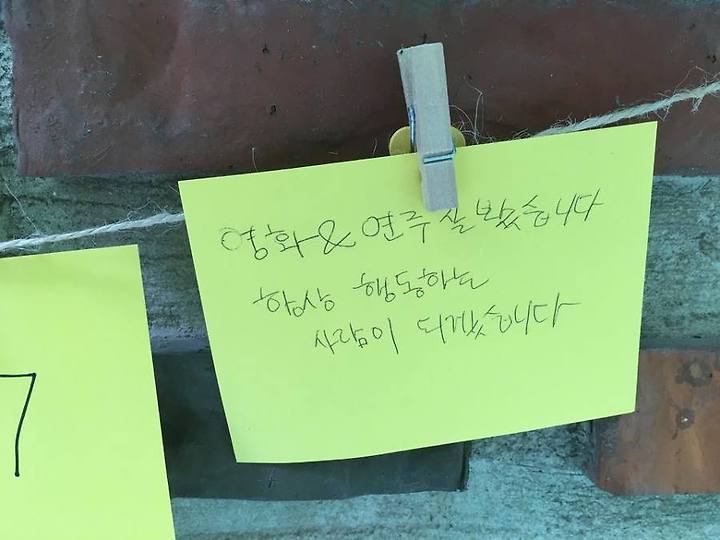 영화 & 연주 잘 봤습니다
항상 행동하는
사람이 되겠습니다
7